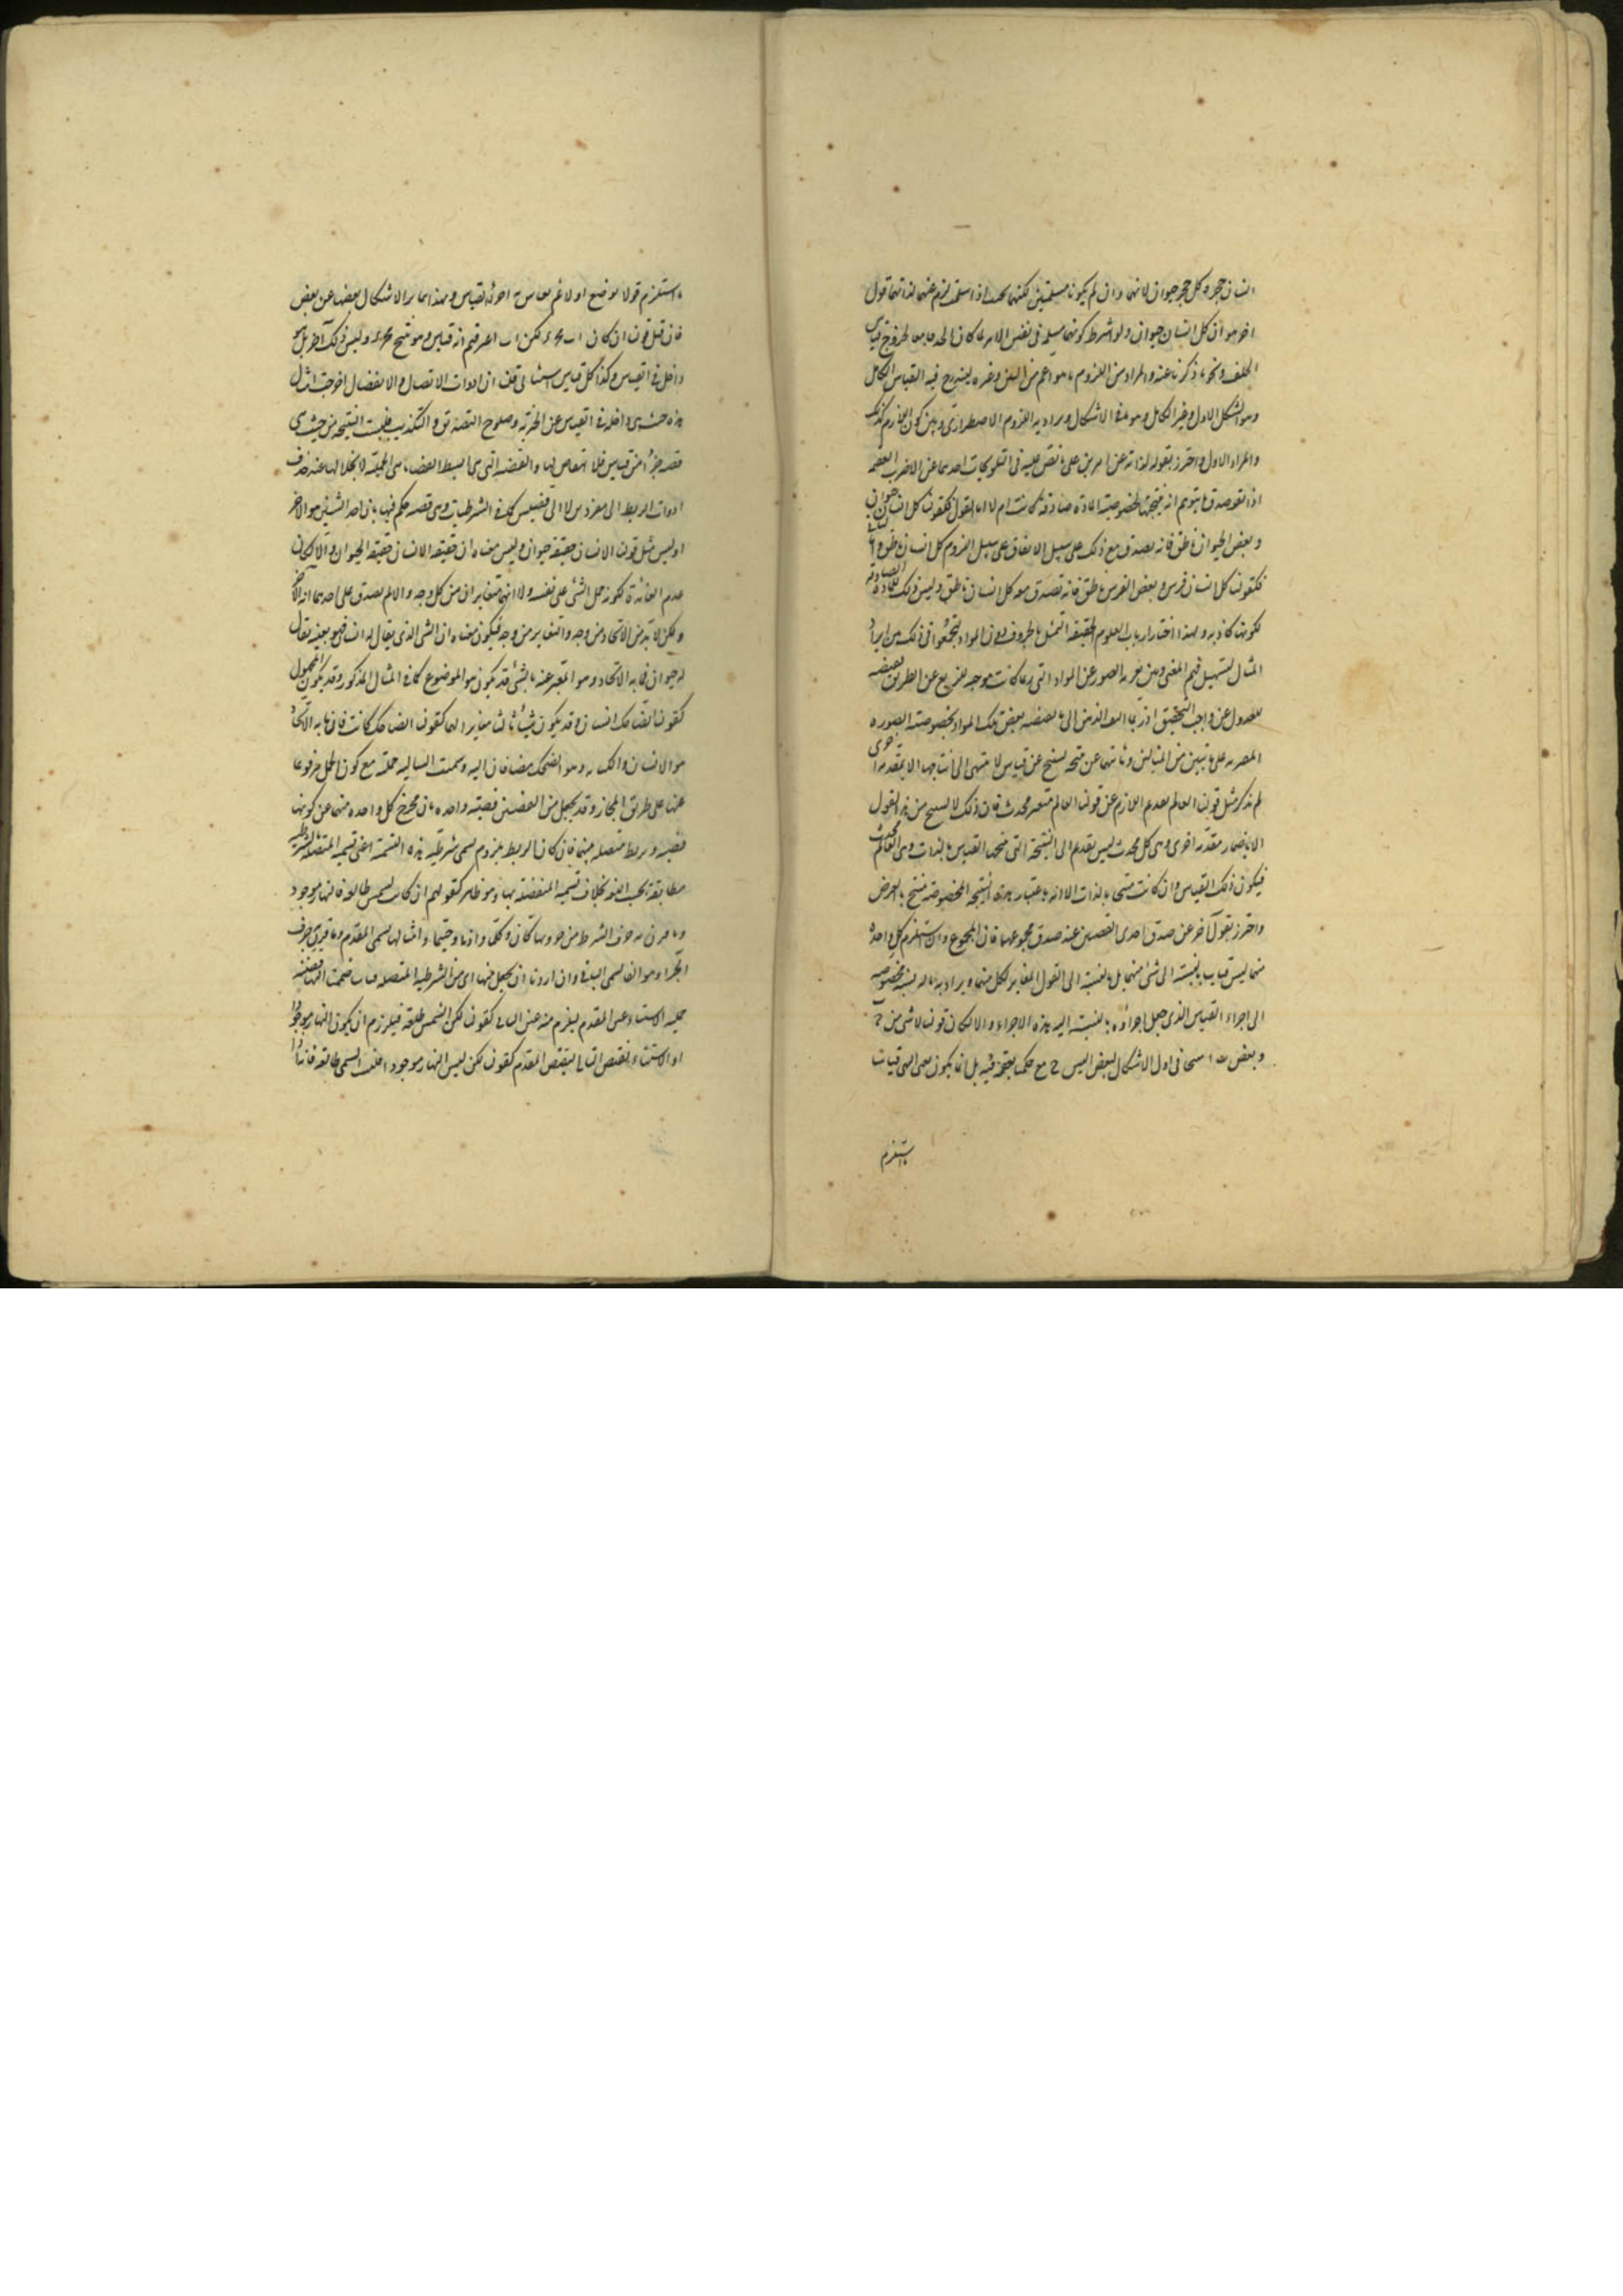 انسان حجر وكل حجر حيوان لانهما وان لم يكونا مسلمتين لكنهما بحيث اذا سلمتا لزم عنهما لذاتهما قول
اخر هو ان كل انسان حيوان ولو اشترط كونهما مسلمة فى نفس الامر لما كان الحد جامعا لخروج قياس
الخلف ونحو ما ذكرنا عنه والمراد من اللزوم ما هو اعم من البين وغيره ليندرج فيه القياس الكامل
وهو الشكل الاول وغير الكامل وهو باقى الاشكال ويراد به اللزوم الاضطرارى وبين كون اللازم كذلك
والمراد الاول واحترز بقوله لذاته عن امرين على ما نص عليه فى التلويحات احدهما عن الاضرب العقيمة
اذا تقوصدق ما يتوهم انه نتيجتها لخصوصية المادة صادقة كانت ام لا اما القول فكقولنا كل انسان حيوان
وبعض الحيوان ناطق فانه يصدق مع ذلك على سبيل الاتفاق لا على سبيل اللزوم كل انسان ناطق واما الثانى
فكقولنا كل انسان فرس وبعض الفرس ناطق فانه تصدق معه كل انسان ناطق وليس ذلك للمادة الصادقة
لكونها كاذبة ولهذا اختار ارباب العلوم الحقيقة التمثيل بالحروف دون المواد ليجمعوا فى ذلك بين ايراد
المثال لتسهيل فهم المعنى وبين تعرية الصور عن المواد التى ربما كانت موجبة لتفريع عن الطريق بعضه
للعدول عن واجب التحقيق اذ ربما التفت الذهن الى ما يقتضيه بعض تلك المواد بخصوصيته الصورة
المعينة على ما تبين من المثالين وثانيهما عن نتيجة تنتج عن قياس لا تنتهى الى انتاجها الا بمقدمة اخرى
لم تذكر مثل قولنا العالم بعدم اللازم عن قولنا العالم متغير محدث فان ذلك لا ينتج من هذا القول
الا باضمار مقدمة اخرى وهى كل محدث ليس بقديم الى النتيجة التى ينتجها القياس بالذات وهى العالم محدث
فيكون ذلك القياس وان كانت منتجا بالذات الا انه باعتبار هذه النتيجة المخصوصة منتج بالعرض
واحترز بقول آخر عن صدق احدى القضيتين عند صدق مجموعهما فان المجموع وان استلزم كل واحدة
منهما ليس قياسا بالنسبة الى شئ منهما بل بالنسبة الى القول المغاير لكل منهما ويراد به ما له نسبة مخصوصة
الى اجزاء القياس الذى جعل اجزاؤه بالنسبة اليه هذه الاجزاء والا لكان قولنا لا شئ من ج
وبعض ب ا منتجا فى اول الاشكال لبعض ا ليس ج مع حكمنا بعقمه فيه بل انما يكون بعض الهيئات
ما تستلزم
ما استلزم قولا بوضع اولا ثم يقاس به اجزاء القياس وبهذا يمايز الاشكال بعضها عن بعض
فان قيل قولنا ان كان ا ب ف ج د لكن ا ب اعترفتم انه قياس وهو منتج ف ج د وليس ذلك آخر بل هو
داخل فى القياس وكذا كل قياس استثنائى قلنا ان ادوات الاتصال والانفصال اخرجت امثال
هذه حيث هى داخلة فى القياس عن الخبرية وصلوح التصديق والتكذيب فليست النتيجة من حيث هى
قضية جزءا من قياس فلا انتقاض بها والقضية التى هى ابسط القضايا هى الحملية لانحلالها عند حذف
ادوات الربط الى مفردين لا الى قضيتين كما فى الشرطيات وهى قضية حكم فيها بان احد الشيئين هو الاخر
او ليس مثل قولنا الانسان حقيقة حيوان وليس معناه ان حقيقة الانسان حقيقة الحيوان والا لكان
عدم الفائدة لكونه حمل الشئ على نفسه ولا انهما متغايران من كل وجه والا لم يصدق على احدهما انه الآخر
ولكن لا بد من الاتحاد من وجه والتغاير من وجه فيكون معناه ان الشئ الذى يقال له انسان فهو بعينه يقال
له حيوان فما به الاتحاد وهو المعبر عنه بالشئ قد يكون هو الموضوع كما فى المثال المذكور وقد يكون المحمول
كقولنا الضاحك انسان وقد يكون شيئا ثالثا مغايرا لهما كقولنا الضاحك كاتب فان ما به الاتحاد
هو الانسان والكتابة وهو الضحك مضافان اليه وسميت السالبة حملية مع كون الحمل مرفوعا
عنها على طريق المجاز وقد يجعل من القضيتين قضية واحدة بان يخرج كل واحدة منهما عن كونها
قضية ويربط متصلة بينهما فان كان الربط بلزوم يسمى شرطية هذه التسمية اعنى تسمية المتصلة بالشرطية
مطابقة بحسب اللغة بخلاف تسمية المنفصلة بها وهو ظاهر كقولهم ان كانت الشمس طالعة فالنهار موجود
وما قرن به حرف الشرط من جزويها كان وكلما واذا وحيثما وامثالها يسمى المقدم وما قرن به حرف
الجزاء وهو الفاء يسمى التالى وان اردنا ان يجعل منها اى من الشرطية المتصلة قياسا ضممنا اليها قضية
حملية لاستثناء عين المقدم ليلزم منه عين التالى كقولنا لكن الشمس طالعة فيلزم ان يكون النهار موجودا
او الاستثناء نقيض التالى لنقيض المقدم كقولنا لكن ليس النهار موجودا فليست الشمس طالعة فان اذا